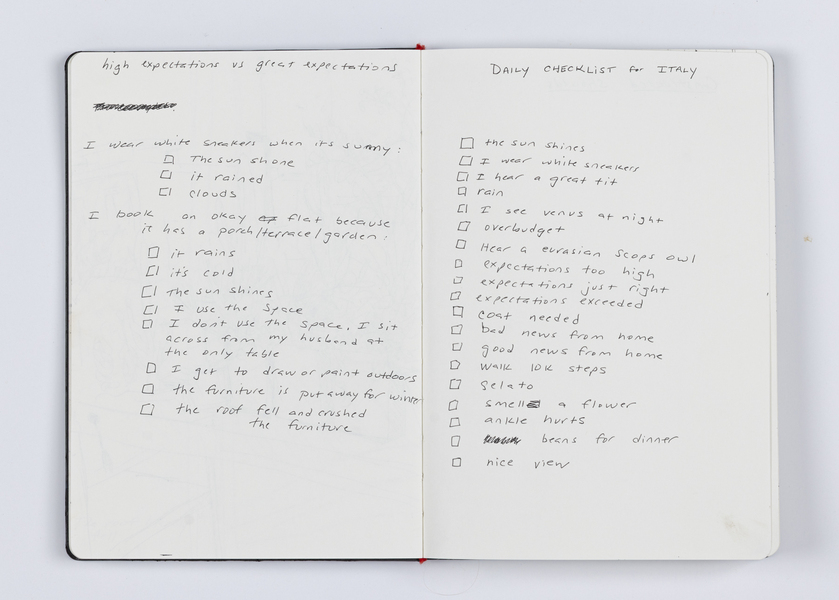 high expectations vs great expectations
I wear white sneakers when its sunny:
The sun shone
it rained
clouds
I book an okay flat because
it has a porch/terrace/garden:
it rains
it's cold
The sun shines
I use the space
I don't use the space, I sit
across from my husband at
the only table
I get to draw or paint outdoors
the furniture is put away for winter
the roof fell and crushed
the furniture
DAILY CHECKLIST for ITALY
the sun shines
I wear white sneakers
I hear a great tit
rain
I see venus at night
overbudget
Hear a eurasian scops owl
expectations too high
expectations just right
expectations exceeded
coat needed
bad news from home
good news from home
walk 10K steps
gelato
smell a flower
ankle hurts
beans for dinner
nice view